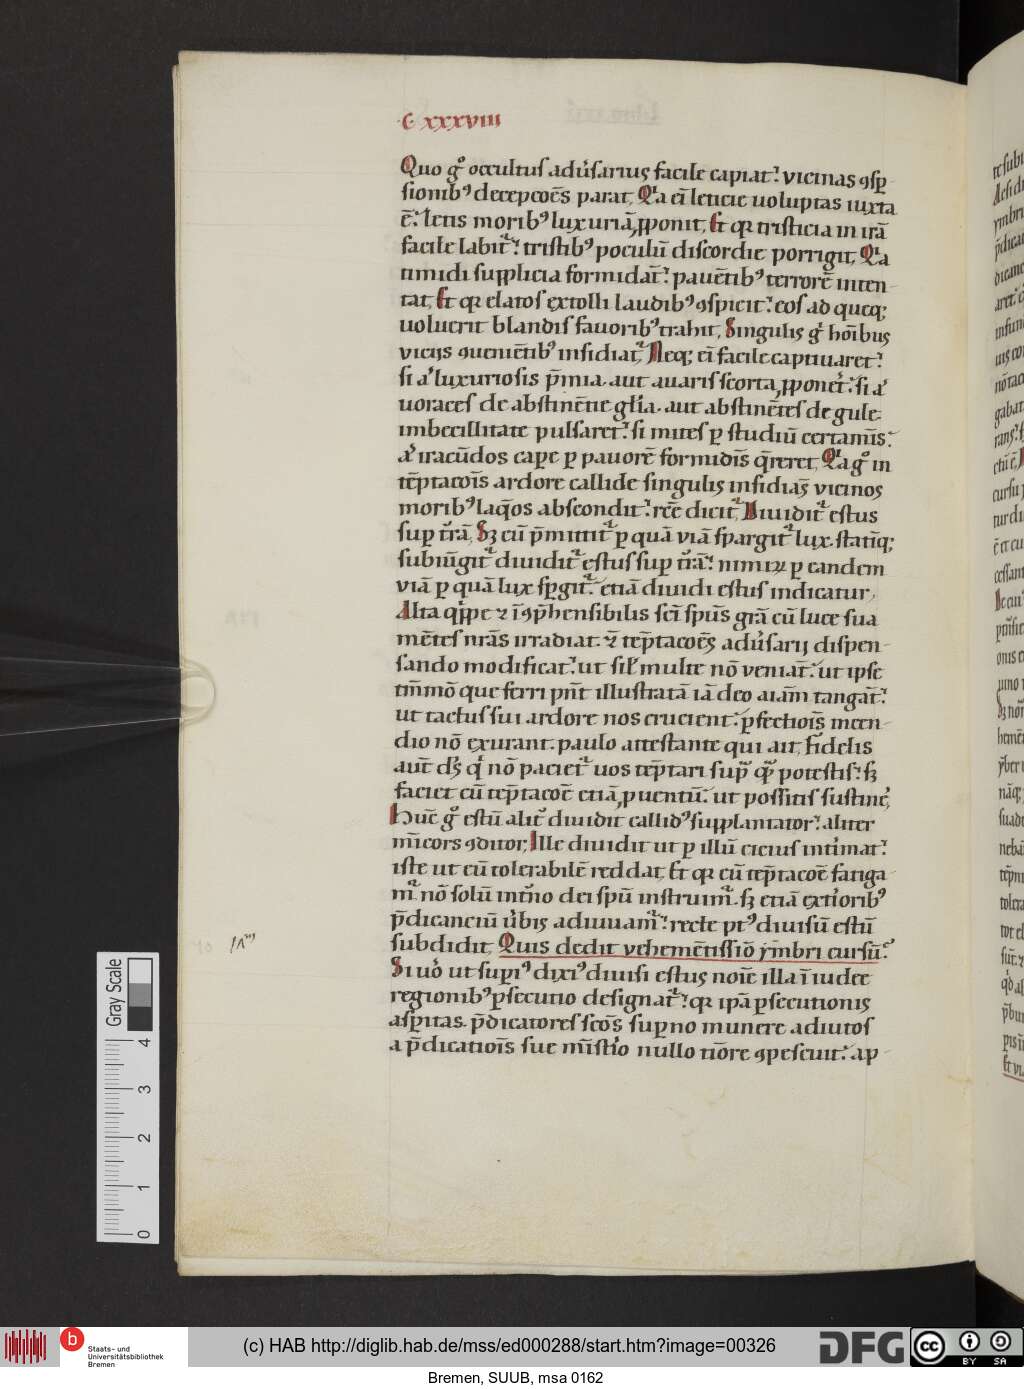 C xxxviii
Quo gͦ occultus adủsarius facile capiat: vicinas ꝯsꝑ
sionibꝰ decepcōēs parat, Qꝛa eī leticie uoluptas iuxta
ē: letis moribꝰ luxuriā ꝓponit, Et qꝛ tristicia in irā
facile labit᷑: tristibꝰ poculū discordie porrigit, Qꝛa
timidi supplicia formidāt: pauētibꝰ terrorē inten
tat, Et qꝛ elatos extolli laudibꝰ ꝯspicit: eos ad queqꝫ
uoluerit blandis fauoribꝰ trahit, Singulis gͥ hōībus
vicijs ꝯueniētibꝰ insidiat᷑, Neqꝫ eī facile captiuaret:
si aͭ luxuriosis p̄mia. aut auaris scorta ꝓponeret: si aͭ
uoraces de abstinētie gl̄ia. aut abstinētes de gule
imbecillitate pulsaret: si mites ꝑ studiū certamīs:
aͭ iracūdos cape ꝑ pauorē formidīs q̄reret, Qꝛa gͦ in
tēptacoīs ardore callide singulis insidiās vicinos
moribꝰ laq̄os abscondit: rēe dicit᷑, Diuidit᷑ estus
suꝑ t̄rā, Sꝫ cū p̄mittit᷑ ꝑ quā viā spargit᷑ lux. statīqꝫ
subiūgit᷑ diuidit᷑ estus suꝑ t̄rā: nimiꝝ ꝑ eandem
viā ꝑ quā lux sꝑgit᷑: etiā diuidi estus indicatur,
Alta qͥppe ⁊ īꝯp̄hensibilis scī sp̄us grā cū luce sua
mētes nrās irradiat. ⁊ tēptacoēs adủsarij dispen
sando modificat: ut sil̄ multe nō veniāt: ut ipse
tm̄mō que ferri pn̄t illustratā iā deo aiām tangāt:
ut tactus sui ardore nos crucient: ꝑfectiois incen
dio nō exurant. paulo attestante qui ait, Fidelis
aut̄ ds̄ qͥ nō paciet᷑ uos tēptari sup̄ qͣꝫ potestis: sꝫ
faciet cū tēptacoē etiā ꝓuentū: ut possitis sustinē,
Hūc gͦ estū alit̄ diuidit callidꝰ supplantator: aliter
mīcors ꝯditor, Ille diuidit ut ꝑ illū cicius intimat:
iste ut eū tolerabilē reddat, Et qꝛ cū tēptacoē fatiga
m᷑ nō solū int̄no dei spū instruim᷑. sꝫ etiā ext̄ioribꝰ
p̄dicanciū ủbis adiuuam᷑: recte ptꝰ diuisū estū
subdidit, Quis dedit vehemētissiō ymbri cursū:
Si uͦo ut supiꝰ dixiꝰ diuisi estus noīe illa ī iudee
regionibꝰ ꝑsecutio designat᷑: qꝛ ipā ꝑsecutionis
asꝑitas. p̄dicatores scōs suꝑno munere adiutos
a p̄dicatiois sue mīstͥo nullo tīore ꝯpescuit: aꝑ
Gray Scale
4
3
2
1
0
b
Staats- und
Universitätsbibliothek
Bremen
(c) HAB http://diglib.hab.de/mss/ed000288/start.htm?image=00326
DFG
cc
BY SA
Bremen, SUUB, msa 0162